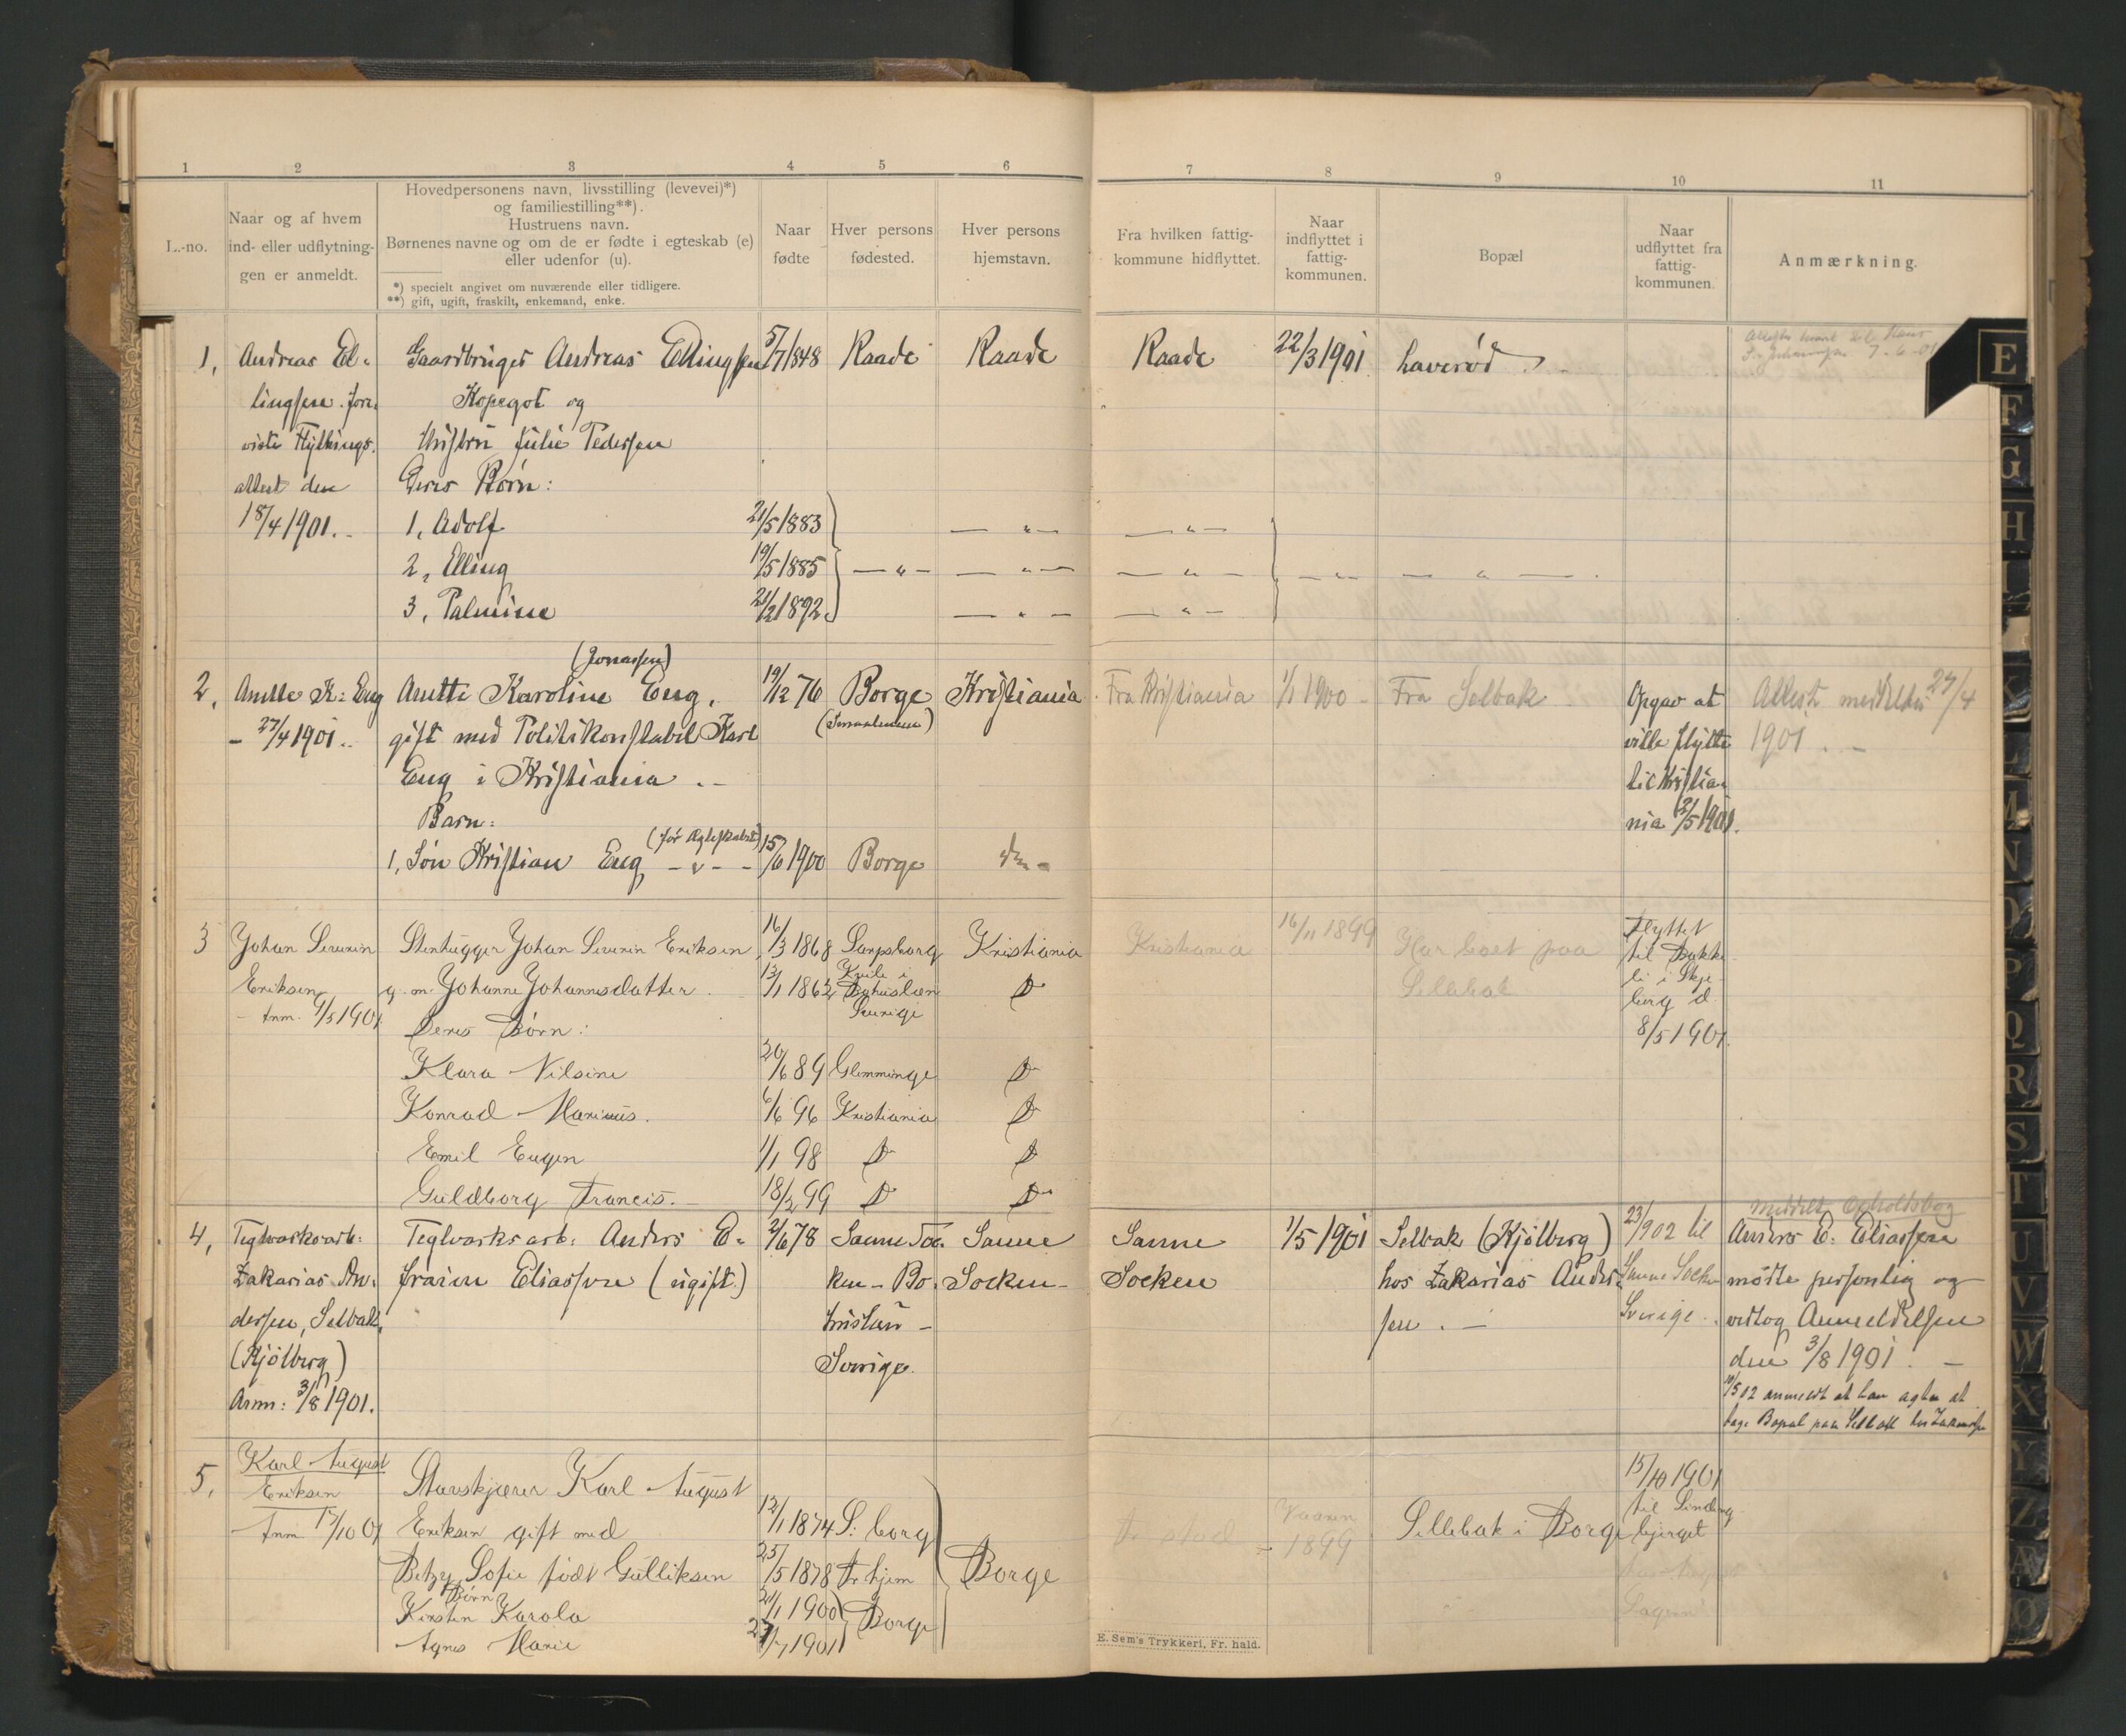 1 2 3 4 5 6 7 8 9 10 11
L.-no.
Naar og af hvem
ind- eller udflytnin-
gen er anmeldt.
Hovedpersonens navn, livsstilling (levevei)*)
og familiestilling**).
Hustruens navn.
Børnenes navne og om de er fødte i egteskab (e)
eller udenfor (u).
*) specielt angivet om nuværende eller tidligere.
**) gift, ugift, fraskilt, enkemand, enke.
Naar
fødte
Hver persons
fødested.
Hver persons
hjemstavn.
Fra hvilken fattig-
kommune hidflyttet.
Naar
indflyttet i
fattig-
kommunen.
Bopæl
Naar
udflyttet fra
fattig-
kommunen.
Anmærkning.
1,
Andreas El-
lingsen fore-
viste Flytnings-
attest den
18/4 1901.
Gaardbruger Andreas Ellingsen 5/7 1848 Raade Raade Raade 22/3 1901
Kopegot og
Hustru Julie Pedersen
Deres Børn:
1, Adolf 21/5 1883 — " — — " —
2, Elling 19/5 1885 — " — — " — — " — — " — — " —
3, Palmine 21/2 1892 — " — — " —
7-6-01
2,
Anette K: Eug
- 27/4 1901.
(Jonassen)
Anette Karoline Eug, 19/12 76 Borge Kristiania Fra Kristiania 1/1 1900 Fra Selbak
gift med Politikonstabel Karl
Eug i Kristiania
Barn:
(før Ægteskabet)
1, Søn Kristian Eug 15/6 1900 Borge
Opgav at
ville flytte
til Kristia-
nia 2/5 1901.
Attest meddelt 27/4
1901.
3
Johan Severin
Eriksen
- Anm. 4/5 1901
Stenhugger Johan Severin Eriksen 16/3 1868 Sarpsborg Kristiania Kristiania 16/11 1899 Har boet paa
Sellebak
g. m. Johanne Johannesdatter 13/1 1862 Kville i
Bohuslæn
Sverige
Do
Deres Børn:
Klara Nilsine 20/6 89 Glemminge Do
Konrad Marinius. 6/6 96 Kristiania Do
Emil Eugen 1/1 98 Do Do
Guldborg Francis. 18/2 99 Do Do
Flyttet
til Bakke-
li i Skje-
berg d.
8/5 1901.
4,
Teglværksarb:
Zakarias An-
dersen, Selbak,
(Kjølberg)
Anm: 3/8 1901.
Teglværksarb: Anders E- 2/6 78
fraim Eliassen (ugift)
Sanne Soc-
ken - Bo-
huslän -
Sverige.
Sanne
Socken -
Sanne
Socken
1/5 1901
Selbak (Kjølberg)
hos Zakarias Ander-
sen. -
23/ 902 til
Sanne Socken
Sverige.
Meddelt Opholdsbog
Anders E. Eliassen
mødte personlig og
vedtog Anmeldelsen
den 3/8 1901. -
/5 02 anmeldt at han agter at
tage Bopæl paa Selbak hos
5,
Karl August
Eriksen
Anm 15/10 01
Karl August
Eriksen gift med 12/1 1874 S: borg
Betzy Sofie født Gulliksen 25/5 1878 Tr. hjem Borge
Børn
Kirsten Karola 21/1 1900 Borge
Agnes Marie 27/7 1901
Vaaren
1899
Sellebak i Borge
15/10 1901
til
bjerget
E. Sem's Trykkeri, Fr. hald.
E
F
G
H
I
K
L
M
N
O
P
Q
R
S
T
U
V
W
X
Y
Z
Æ
Ø